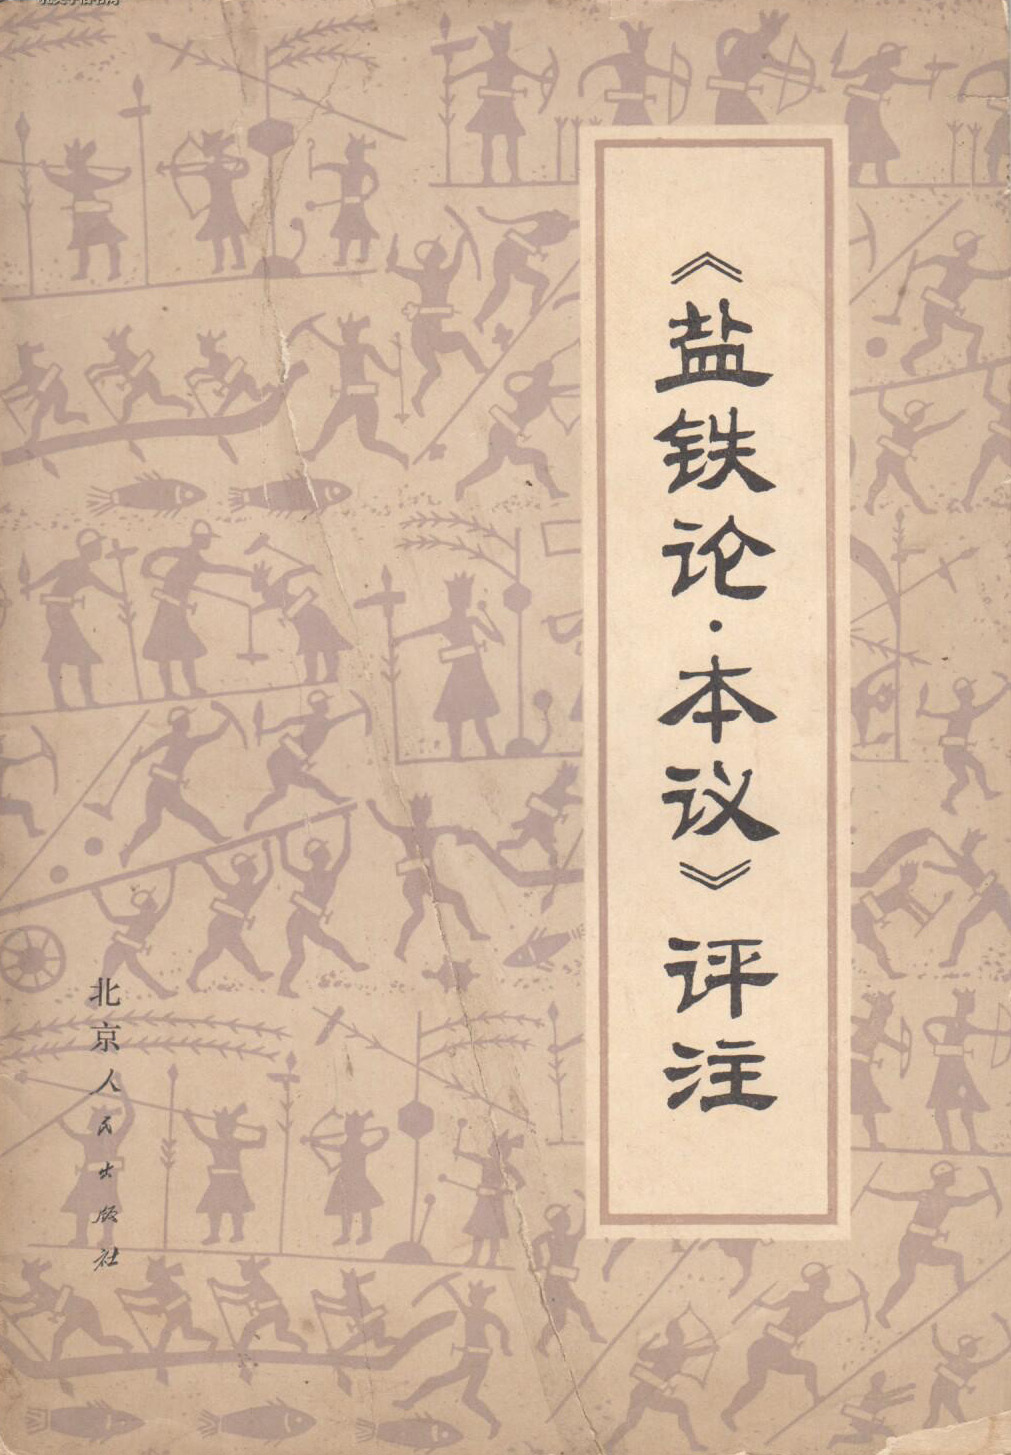 《盐铁论·本议》评注
北京人民出版社